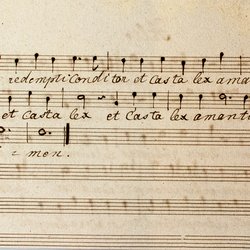 redempti Conditor et Casta lex aman
et Casta lex et Casta lex amanti
imen.